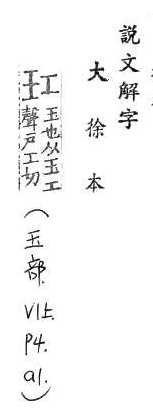 說文解字
大徐本
玒 玉也从玉工
聲戶工切
(玉部. V1上. P4. a1.)